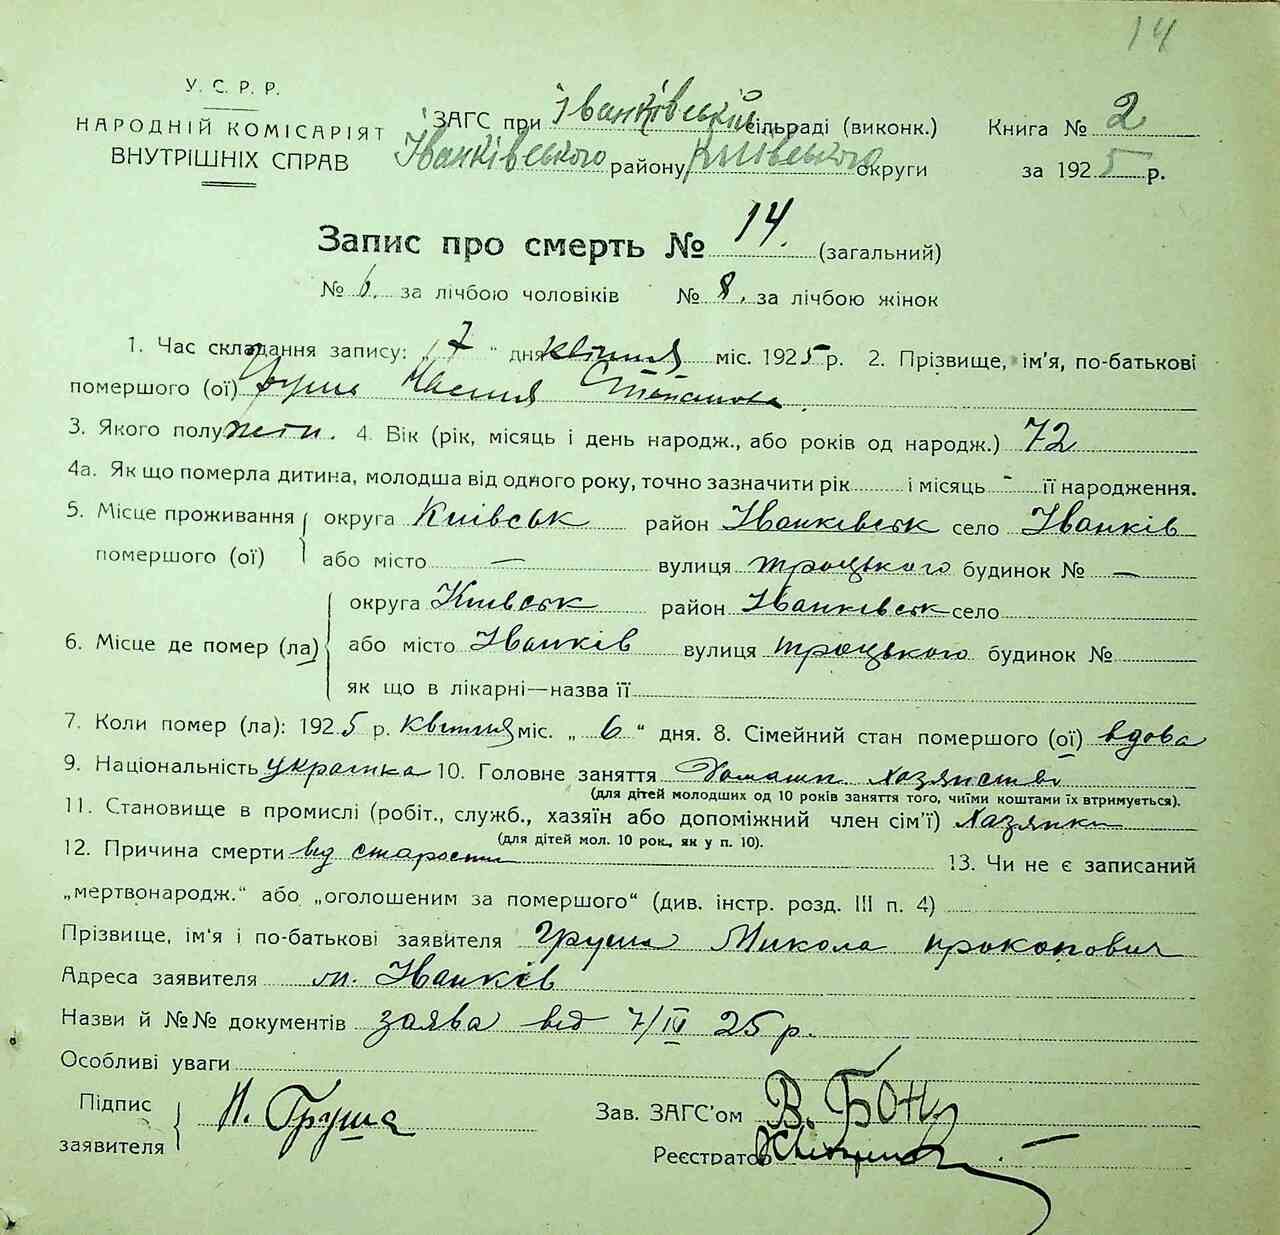 14
У. С. Р. Р.
НАРОДНІЙ КОМІСАРІЯТ
ВНУТРІШНІХ СПРАВ
ЗАГС при Іванківській сільраді (виконк.)
Іванківського району Київського округи
Книга № 2
за 1925 р.
Запис про смерть № 14. (загальний)
№ 6. за лічбою чоловіків № 8. за лічбою жінок
1. Час складання запису: „ 7 “ дня квітня міс. 1925 р. 2. Прізвище, ім'я, по-батькові
помершого (ої) Груша Настя Степанова
3. Якого полу жін. 4. Вік (рік, місяць і день народж., або років од народж.) 72
4а. Як що померла дитина, молодша від одного року, точно зазначити рік і місяць - її народження.
5. Місце проживання помершого (ої) округа Київськ район Іванківськ село Іванків
або місто — вулиця Троцького будинок № —
6. Місце де помер (ла) округа Київськ район Іванківськ село
або місто Іванків вулиця Троцького будинок №
як що в лікарні—назва її
7. Коли помер (ла): 1925 р. квітня міс. „ 6 “ дня. 8. Сімейний стан помершого (ої) вдова
9. Національність українка 10. Головне заняття Домашн. хазянство
(для дітей молодших од 10 років заняття того, чиїми коштами їх втримується).
11. Становище в промислі (робіт., служб., хазяїн або допоміжний член сім'ї) Хазянка
(для дітей мол. 10 рок., як у п. 10).
12. Причина смерти від старости 13. Чи не є записаний
„мертвонародж.“ або „оголошеним за помершого“ (див. інстр. розд. III п. 4)
Прізвище, ім'я і по-батькові заявителя Груша Микола прокопович
Адреса заявителя м. Іванків
Назви й №№ документів заява від 7/IV 25 р.
Особливі уваги
Підпис заявителя Н. Груша
Зав. ЗАГС'ом В. Бон
Реєстратор